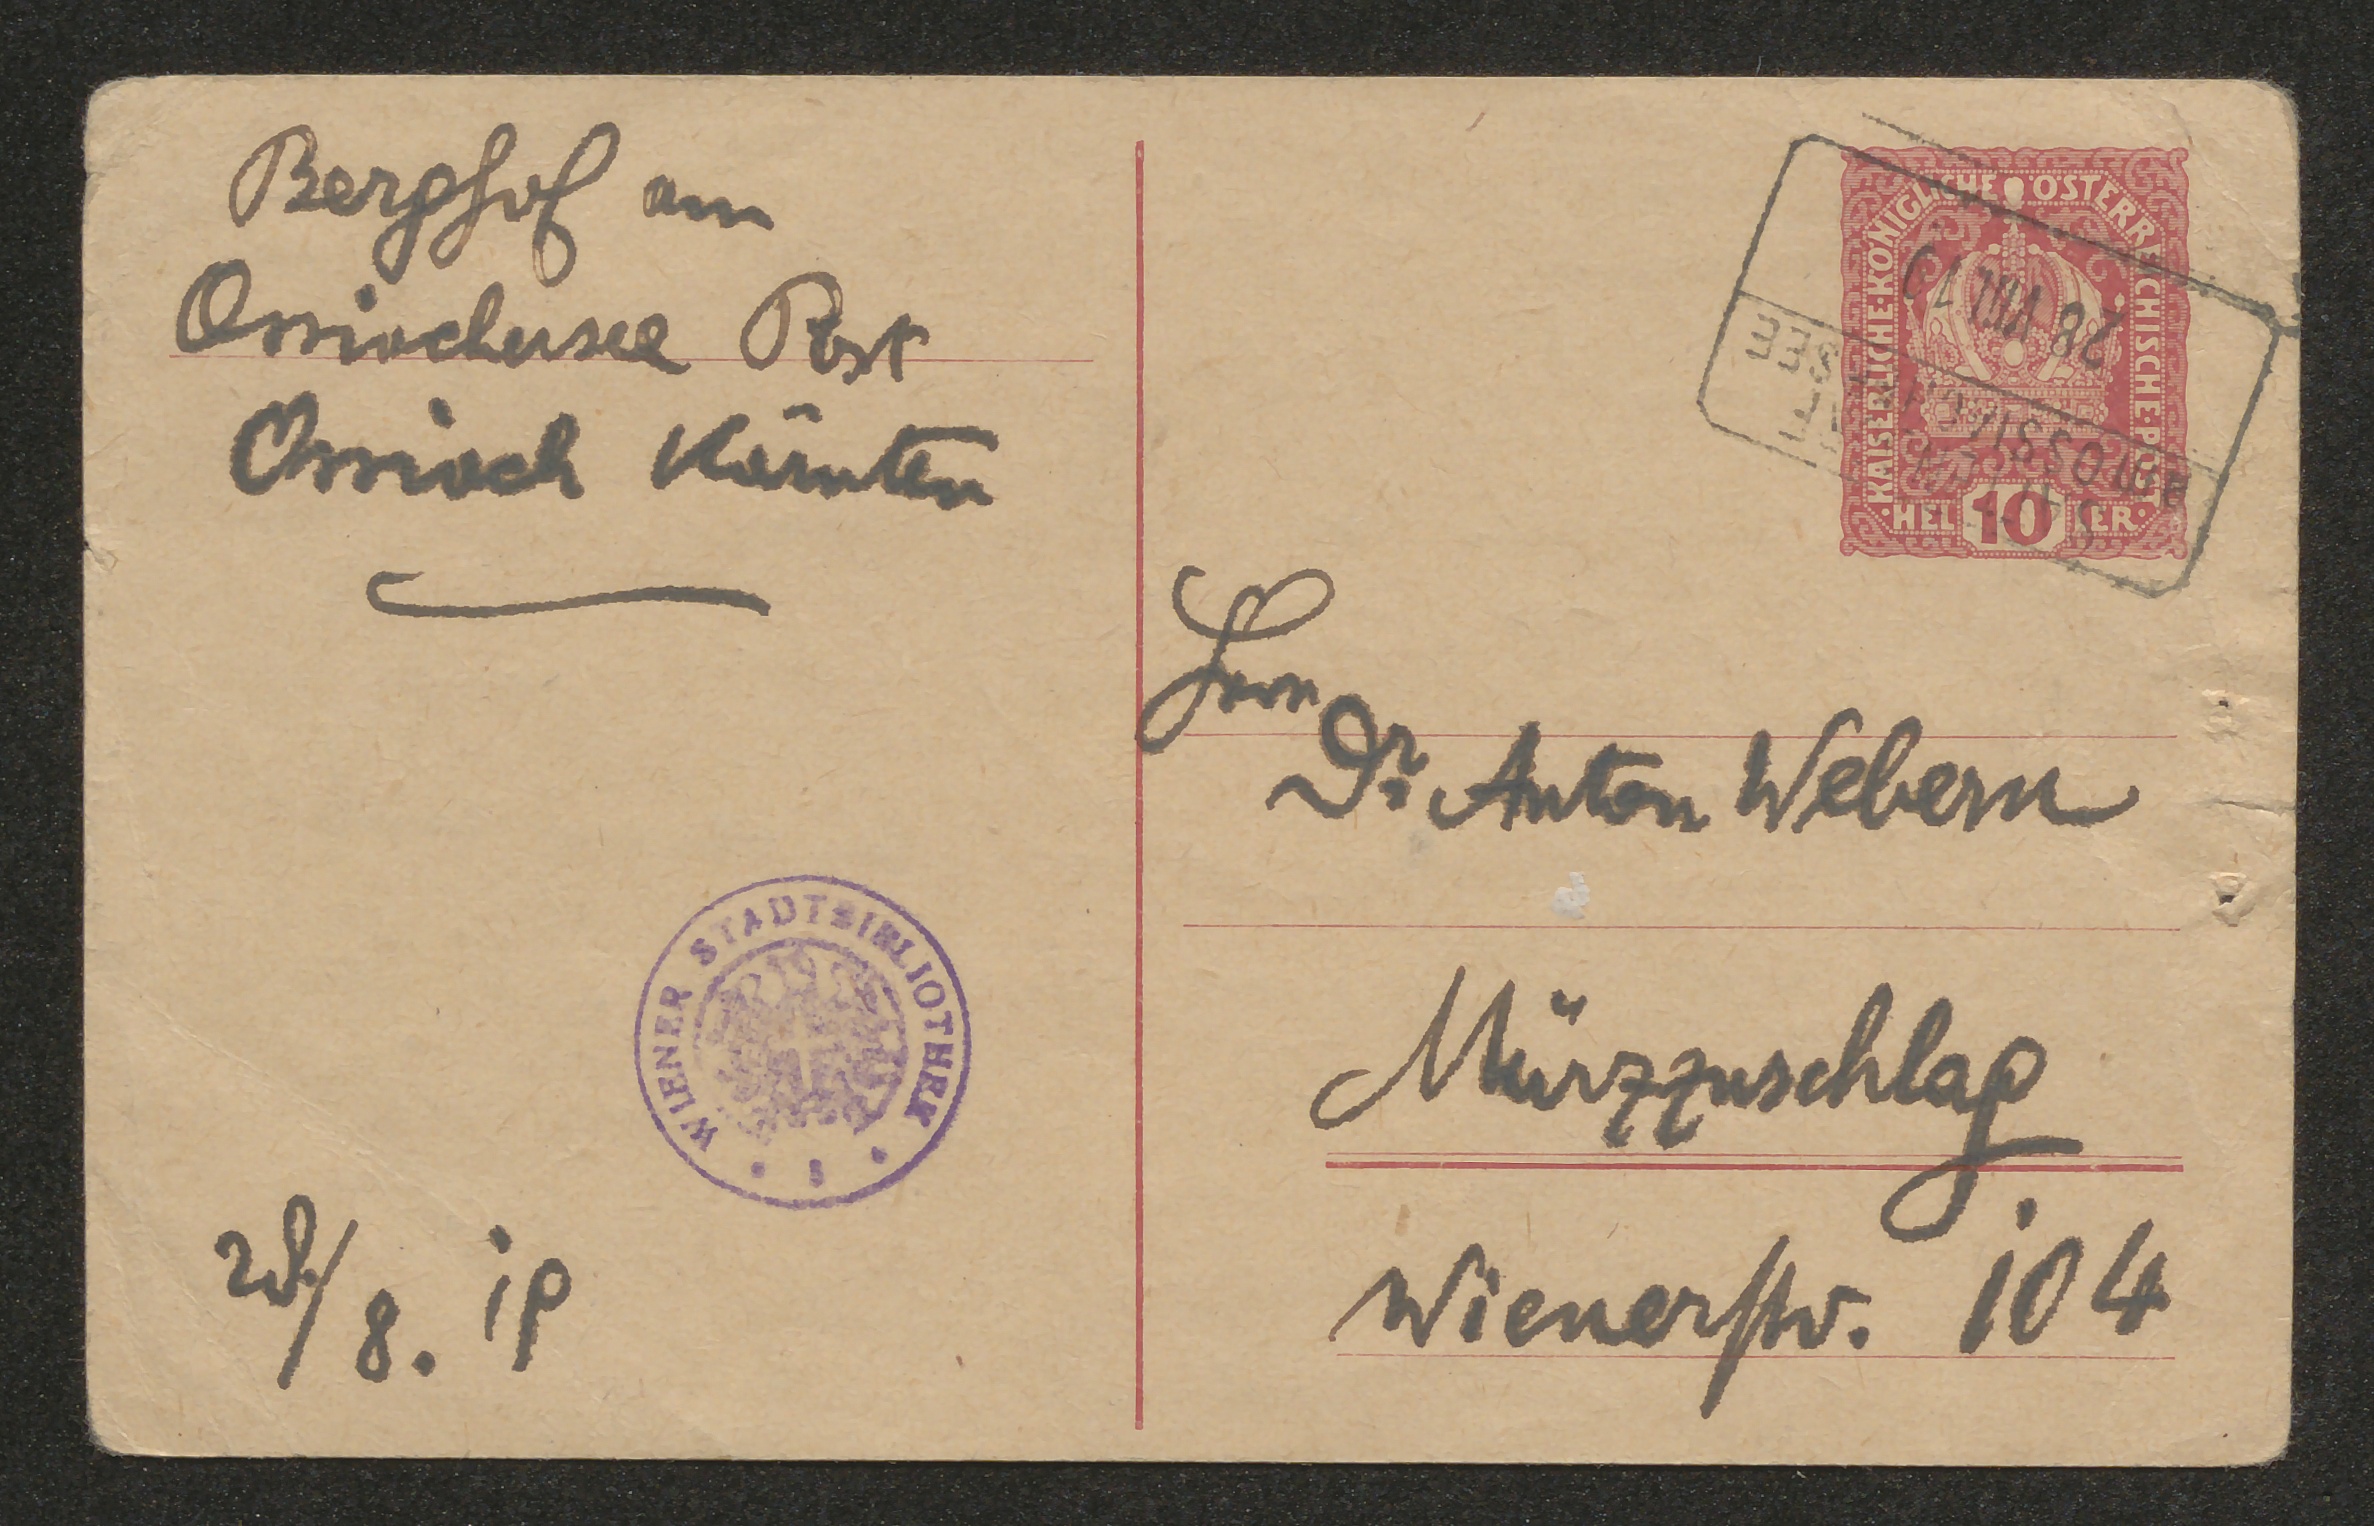 Berghof am
Ossiachersee Post
Ossiach Kärnten
28/8. 19
WIENER STADTBIBLIOTHEK
KAISERLICHE·KÖNIGLICHE ÖSTERREICHISCHE·POST
HELLER
10
28 VIII 17
SEE
Herrn
Dr. Anton Webern
Mürzzuschlag
Wienerstr. 104